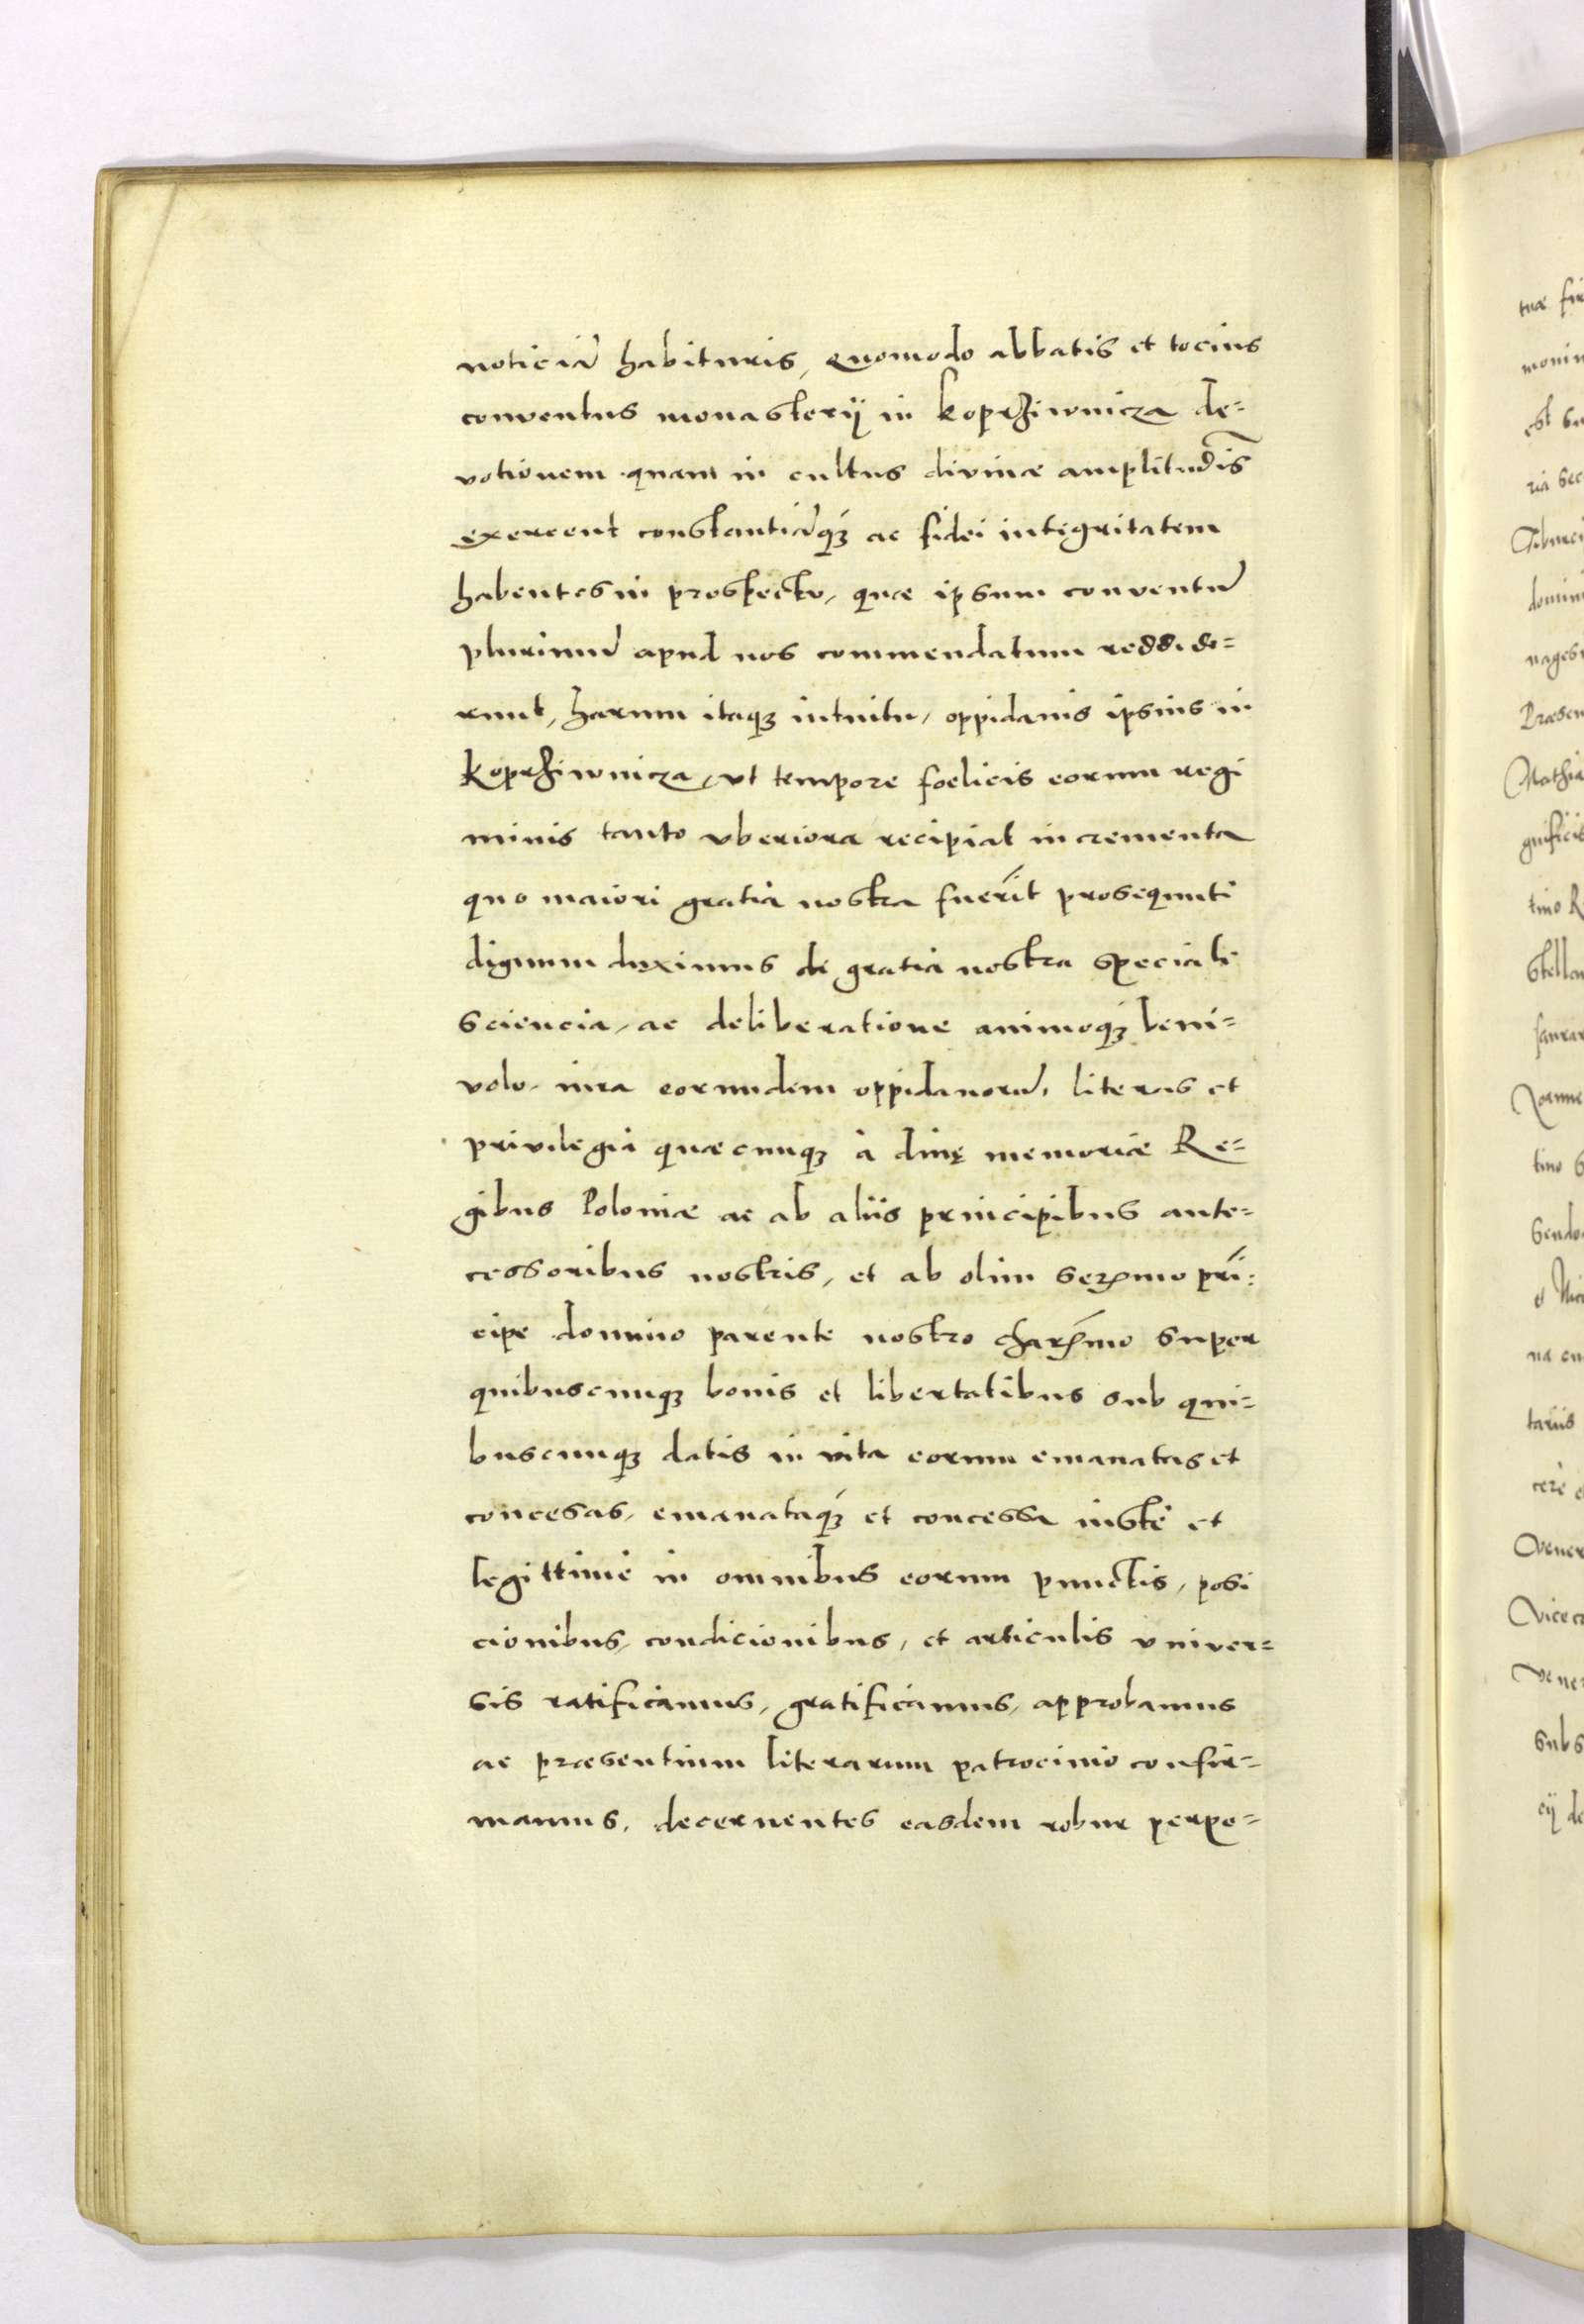 noticiã habituris, quomodo abbatis et tocius
conventus monasterij in Koprziwnicza de=
votionem quam in cultus divinæ amplitudĩs
exercent constantiãq3 ac fidei integritatem
habentes in prospectu, quæ ipsum conventũ
plurimũ apud nos commendatum reddide=
runt, harum itaq3 intuitu, oppidanis ipsius in
Koprziwnicza, ut tempore foelicis eorum regi
minis tanto uberiora recipiat incrementa
quo maiori gratia nostra fuerĩt prosequuti
dignum duximus de gratia nostra speciali
sciencia, ac deliberatione animoq3 beni=
volo, iura eorundem oppidanorũ, literas et
privilegia quæcunq3 à divę memoriæ Re=
gibus Poloniæ ac ab aliis principibus ante=
cessoribus nostris, et ab olim serenmo prĩ=
cipe domino parente nostro charismo super
quibuscunq3 bonis et libertatibus sub qui=
buscunq3 datis in vita eorum emanatas et
concesas, emanataq3 et concessa iuste et
legittime in omnibus eorum punctis, posi
cionibus, condicionibus, et articulis univer=
sis ratificamus, gratificamus, approbamus
ac præsentium literarum patrocinio confir=
mamus, decernentes easdem robur perpe=
tuæ
moni
est
domini
Præsen
Mathia
tino
tino
na
tariis
Vener
Vicec
Vener
subs